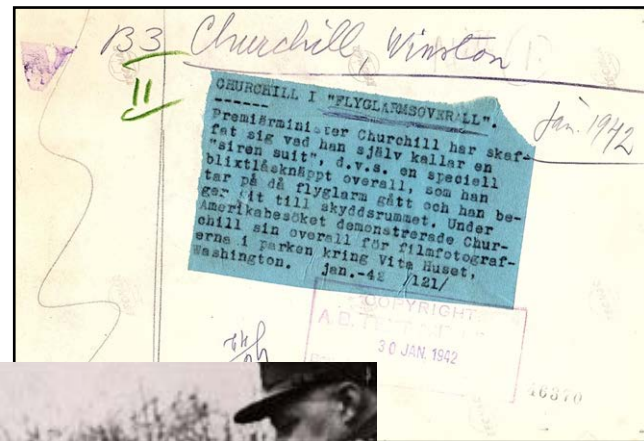 B3 Churchill, Winston
II
CHURCHILL I "FLYGLARMSOVERALL".
------
Premiärminister Churchill har skaf-
fat sig vad han själv kallar en
"siren suit", d.v.s. en speciell
blixtlåsknäppt overall, som han
tar på då flyglarm gått och han be-
ger sit till skyddsrummet. Under
Amerikabesöket demonstrerade Chur-
chill sin overall för filmfotograf-
erna i parken kring Vita Huset,
Washington. jan.-42 /121/
Jan. 1942
COPYRIGHT
A.B.
30 JAN. 1942
46370